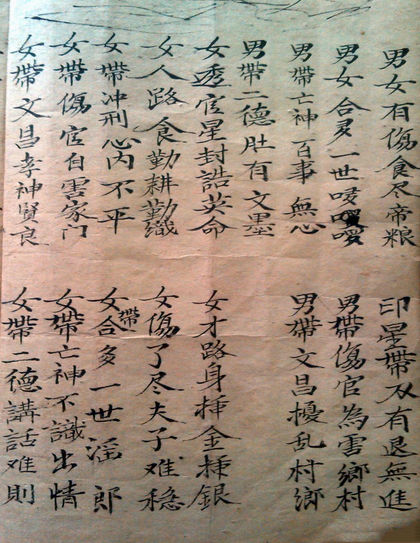 男女有傷食尽帝粮
印星帶刃有退無進
男女合多一世嗳嗳
男帶傷官為害鄉村
男帶亡神百事無心
男帶文昌擾乱村鄉
男帶二德肚有文墨
女透官星封誥英命
女才路身揷金揷銀
女人路食勤耕勤織
女傷了尽夫子难稳
女帶冲刑心内不平
女合帶多一世滛郎
女帶傷官自害家门
女帶亡神不識出情
女帶文昌孝神賢良
女帶二德講話难則